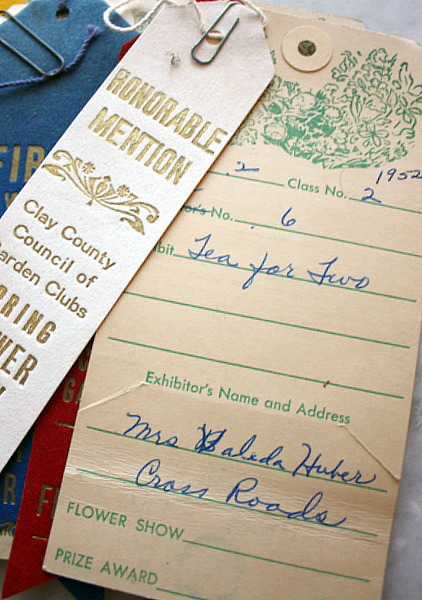 HONORABLE
MENTION
Clay County
Council of
Garden Clubs
FIR
1952
2 Class No. 2
No. 6
Tea for Two
Exhibitor's Name and Address
Mrs Haleda Huber
Cross Roads
FLOWER SHOW
PRIZE AWARD